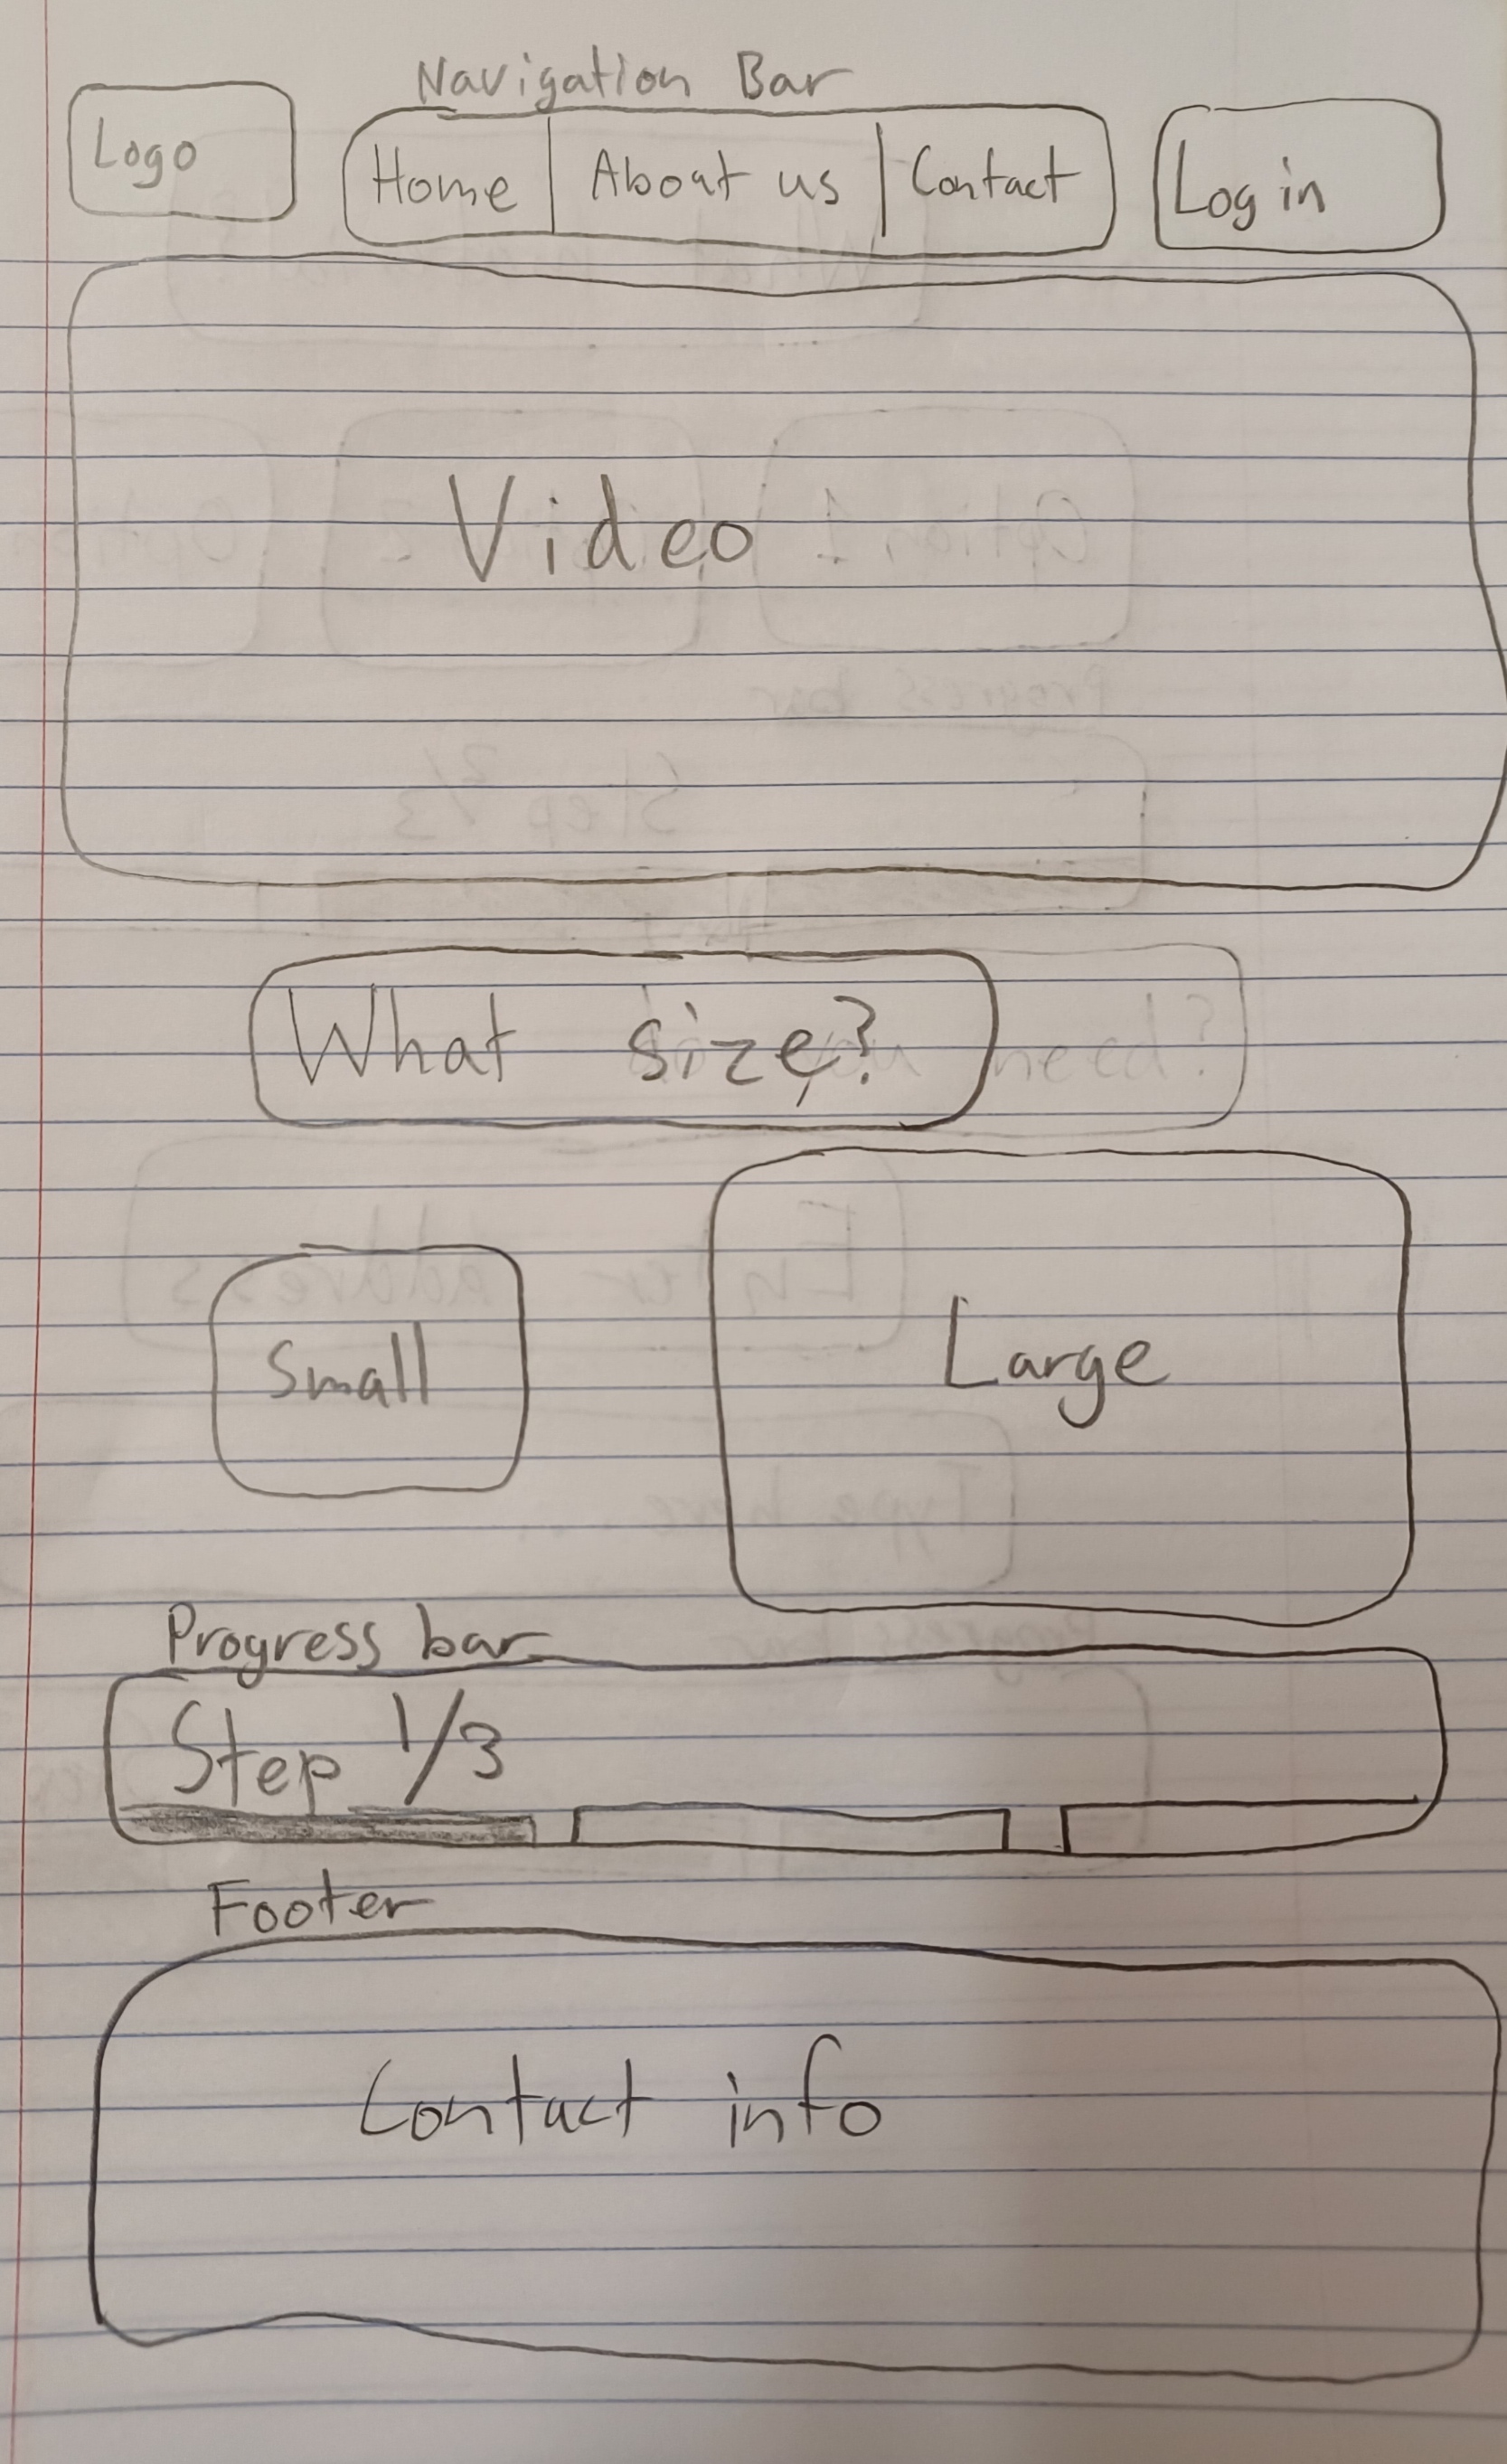 Navigation Bar
Logo
Home About us Contact
Log in
Video
What size?
Small
Large
Progress bar
Step 1/3
Footer
Contact info